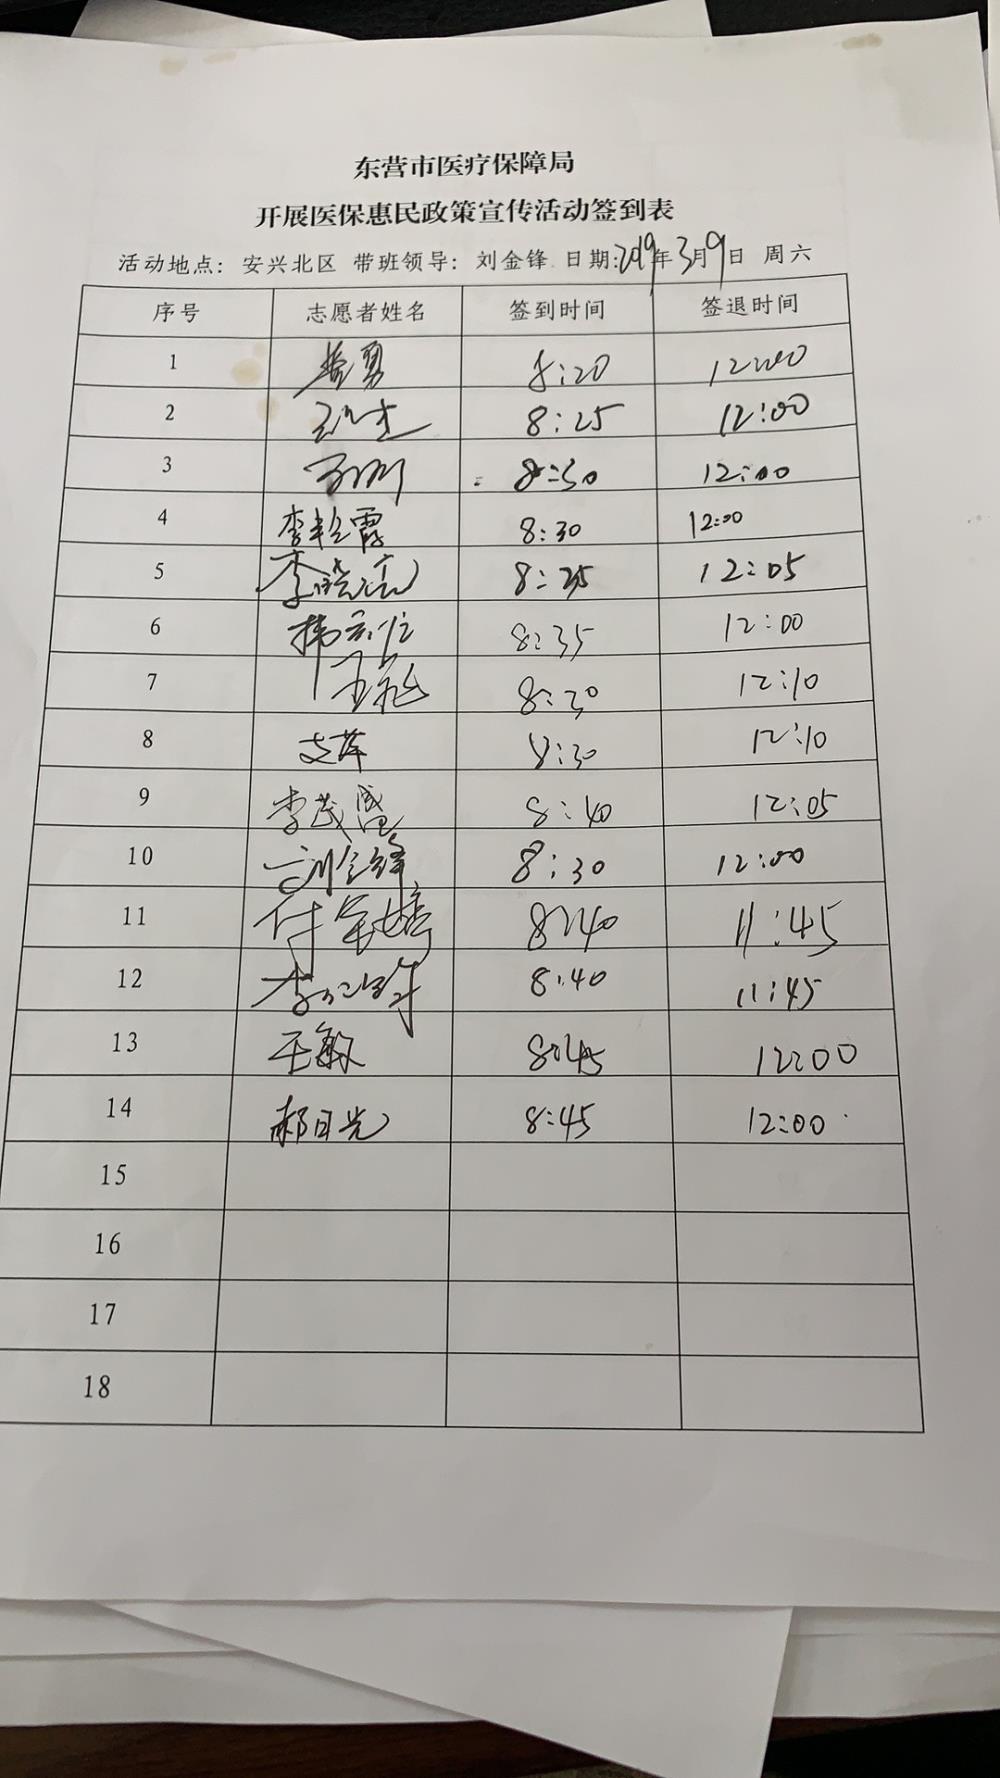 东营市医疗保障局
开展医保惠民政策宣传活动签到表
活动地点：安兴北区 带班领导：刘金锋 日期:2019年3月9日 周六
序号 志愿者姓名 签到时间 签退时间
1 勇 8:20 12:00
2 8:25 12:00
3 8:30 12:00
4 李艳霞 8:30 12:00
5 李晓 8:35 12:05
6 韩宗位 8:35 12:00
7 王 8:30 12:10
8 支萍 8:30 12:10
9 李茂盛 8:40 12:05
10 刘金锋 8:30 12:00
11 付金婷 8:40 11:45
12 李 8:40 11:45
13 王敏 8:45 12:00
14 郝日光 8:45 12:00
15
16
17
18